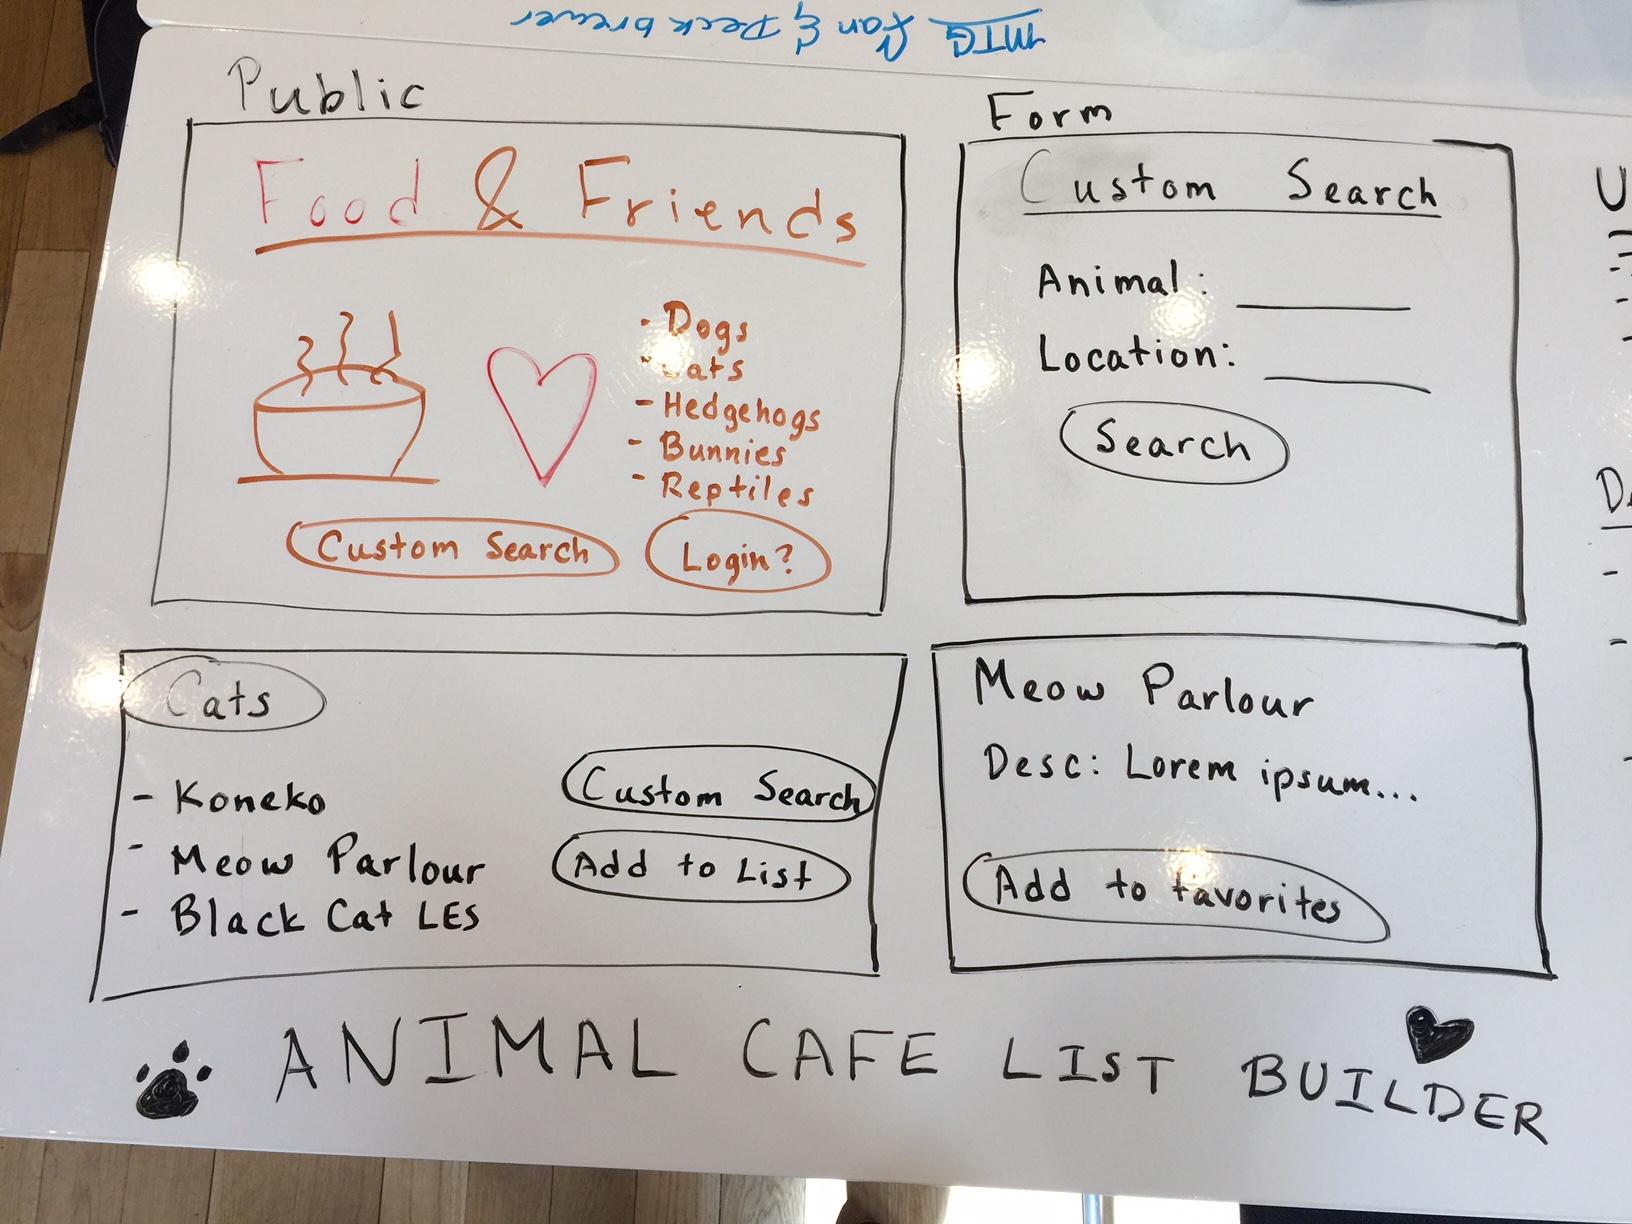 MTG fan & Deck brewer
Public
Food & Friends
- Dogs
- Cats
- Hedgehogs
- Bunnies
- Reptiles
Custom Search
Login?
Form
Custom Search
Animal: ____
Location: ____
Search
Cats
- Koneko
- Meow Parlour
- Black Cat LES
Custom Search
Add to List
Meow Parlour
Desc: Lorem ipsum...
Add to favorites
ANIMAL CAFE LIST BUILDER